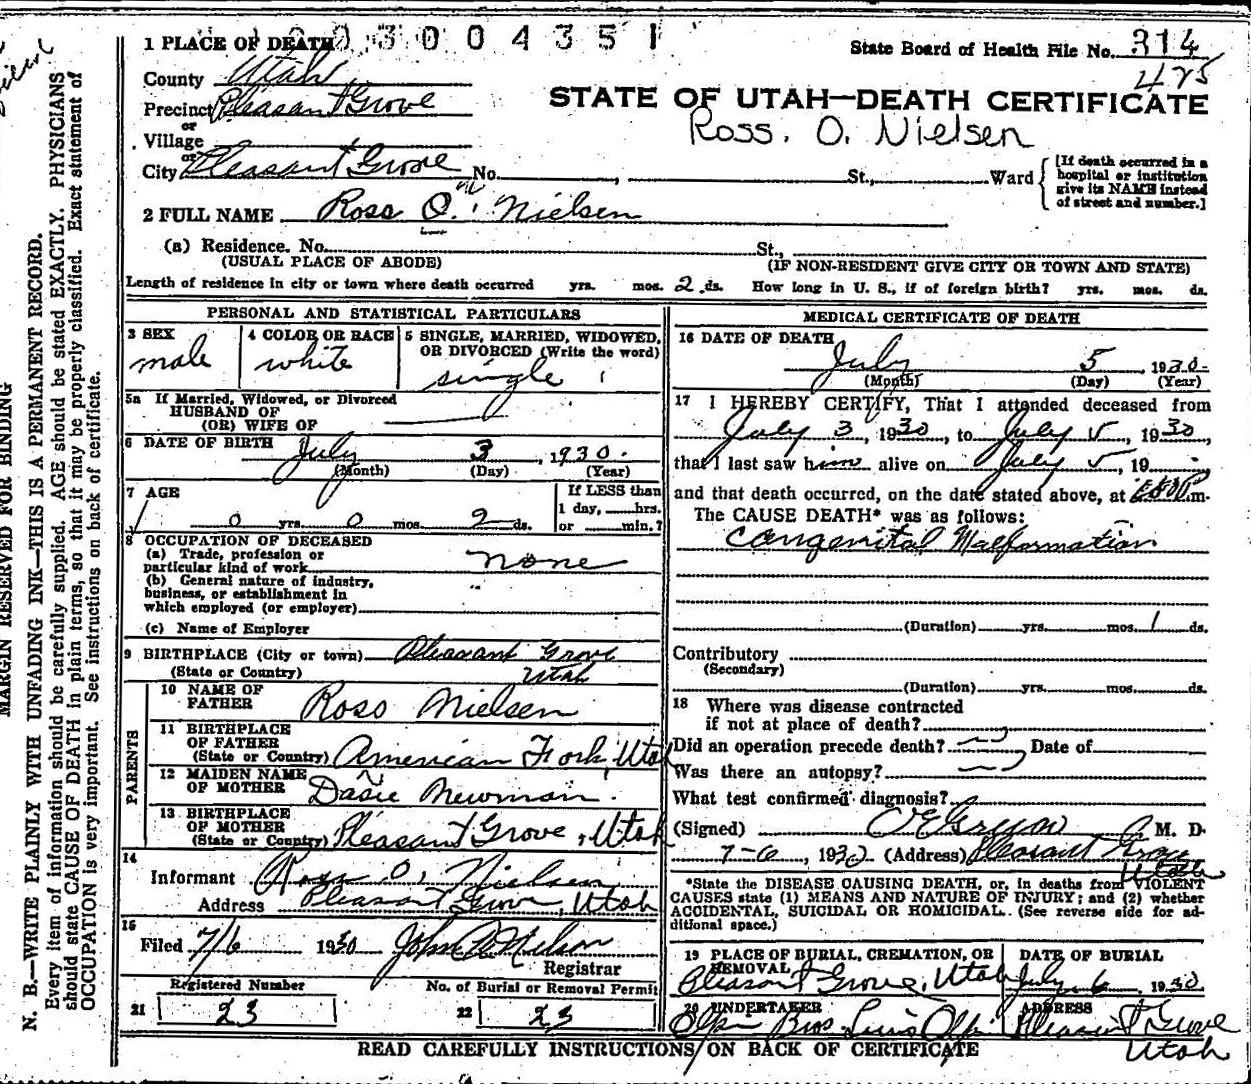 3004351
State Board of Health File No. 314
475
1 PLACE OF DEATH
County Utah
STATE OF UTAH—DEATH CERTIFICATE
Precinct Pleasant Grove
or
Village
Ross. O. Nielsen
or
City Pleasant Grove No. , St., Ward
[If death occurred in a
hospital or institution
give its NAME instead
of street and number.]
2 FULL NAME Ross O. Nielsen
(a) Residence. No. St.,
(USUAL PLACE OF ABODE) (IF NON-RESIDENT GIVE CITY OR TOWN AND STATE)
Length of residence in city or town where death occurred yrs. mos. 2 ds. How long in U. S., if of foreign birth? yrs. mos. ds.
PERSONAL AND STATISTICAL PARTICULARS
3 SEX
male
4 COLOR OR RACE
white
5 SINGLE, MARRIED, WIDOWED,
OR DIVORCED (Write the word)
single
5a If Married, Widowed, or Divorced
HUSBAND OF
(OR) WIFE OF
6 DATE OF BIRTH July 3, 1930.
(Month) (Day) (Year)
7 AGE
0 yrs. 0 mos. 2 ds.
If LESS than
1 day, hrs.
or min.?
8 OCCUPATION OF DECEASED
(a) Trade, profession or
particular kind of work none
(b) General nature of industry,
business, or establishment in
which employed (or employer)
(c) Name of Employer
9 BIRTHPLACE (City or town) Pleasant Grove
(State or Country) Utah
PARENTS
10 NAME OF
FATHER Ross Nielsen
11 BIRTHPLACE
OF FATHER
(State or Country) American Fork, Utah
12 MAIDEN NAME
OF MOTHER Dasie Newman.
13 BIRTHPLACE
OF MOTHER
(State or Country) Pleasant Grove, Utah
14
Informant Ross O. Nielsen
Address Pleasant Grove, Utah
15
Filed 7/6 1930 John A Nielson
Registrar
Registered Number No. of Burial or Removal Permit
21 23 22 23
MEDICAL CERTIFICATE OF DEATH
16 DATE OF DEATH
July 5, 1930.
(Month) (Day) (Year)
17 I HEREBY CERTIFY, That I attended deceased from
July 3, 1930, to July 5, 1930,
that I last saw him alive on July 5, 19
and that death occurred, on the date stated above, at m.
The CAUSE DEATH* was as follows:
Congenital Malformation
(Duration) yrs. mos. 1 ds.
Contributory
(Secondary)
(Duration) yrs. mos. ds.
18 Where was disease contracted
if not at place of death?
Did an operation precede death? Date of
Was there an autopsy?
What test confirmed diagnosis?
(Signed) M. D.
7-6, 1930 (Address) Pleasant Grove
Utah
*State the DISEASE CAUSING DEATH, or, in deaths from VIOLENT
CAUSES state (1) MEANS AND NATURE OF INJURY; and (2) whether
ACCIDENTAL, SUICIDAL OR HOMICIDAL. (See reverse side for ad-
ditional space.)
19 PLACE OF BURIAL, CREMATION, OR
REMOVAL
Pleasant Grove, Utah
DATE OF BURIAL
July 6, 1930
20 UNDERTAKER
Olpin Bros Louis Olpin
ADDRESS
Pleasant Grove
Utah
READ CAREFULLY INSTRUCTIONS ON BACK OF CERTIFICATE
MARGIN RESERVED FOR BINDING
N. B.—WRITE PLAINLY WITH UNFADING INK—THIS IS A PERMANENT RECORD.
Every item of information should be carefully supplied. AGE should be stated EXACTLY. PHYSICIANS
should state CAUSE OF DEATH in plain terms, so that it may be properly classified. Exact statement of
OCCUPATION is very important. See instructions on back of certificate.